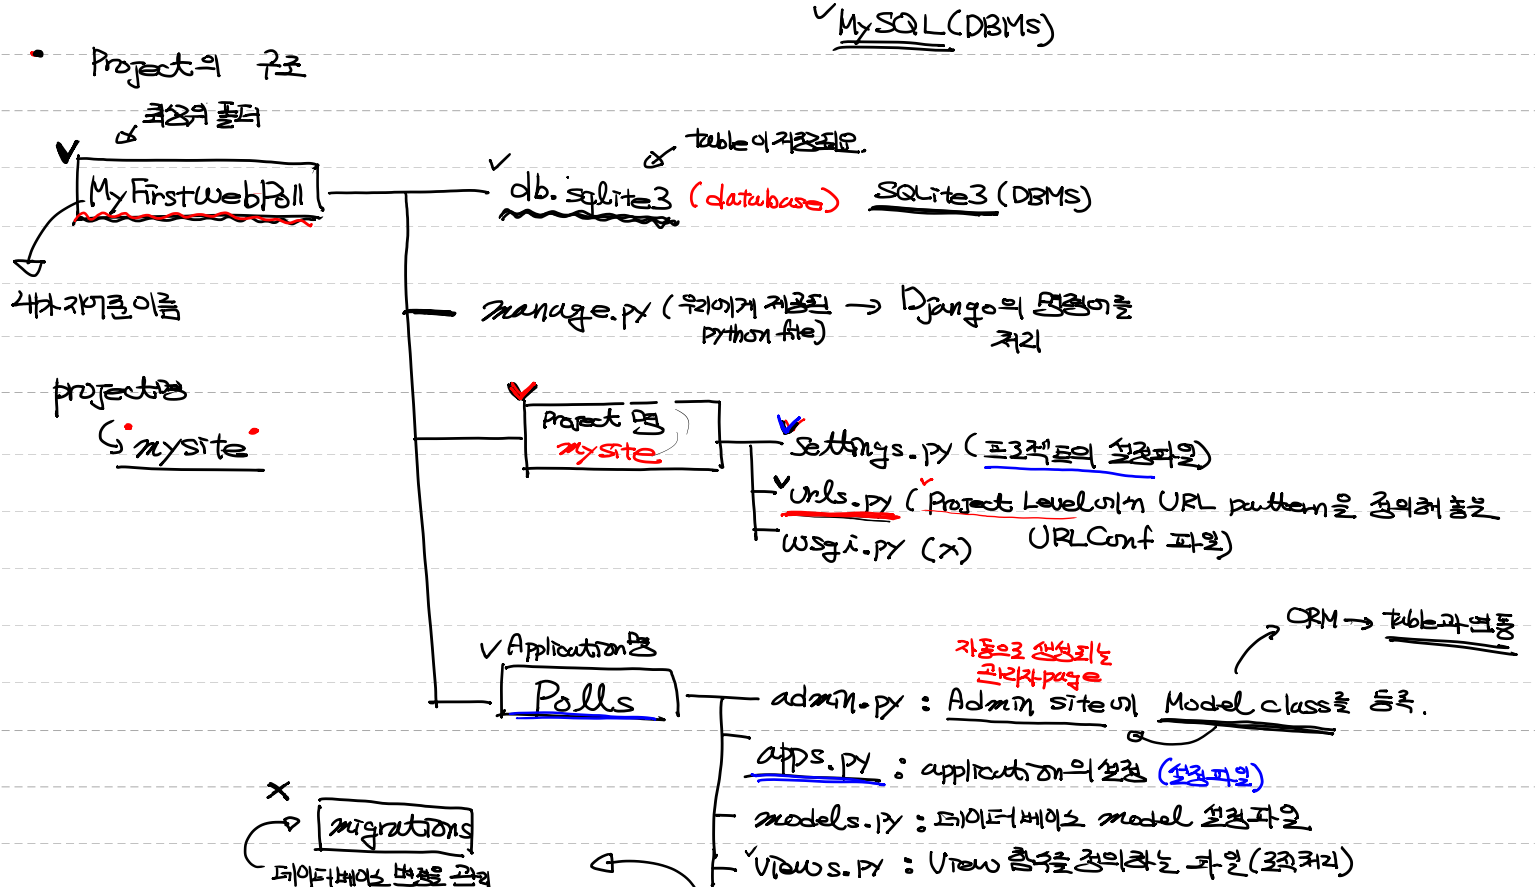 ✓MySQL(DBMS)
• Project의 구조
최상위 폴더
table이 저장되요.
MyFirstWebPoll
db.sqlite3 (database) SQLite3(DBMS)
내가 지어준 이름
manage.py (우리에게 제공된 → Django의 명령어를
python file) 처리
project명
mysite
Project 명
mysite
settings.py (프로젝트의 설정파일)
urls.py (Project Level에서 URL pattern을 정의해 놓은
URLConf 파일)
wsgi.py (x)
ORM → table과 연동
Application명
Polls
자동으로 생성되는
관리자page
admin.py : Admin site에 Model class를 등록.
apps.py : application의 설정 (설정파일)
models.py : 데이터베이스 model 설정파일
views.py : View 함수를 정의하는 파일(로직처리)
migrations
데이터베이스 변경을 관리